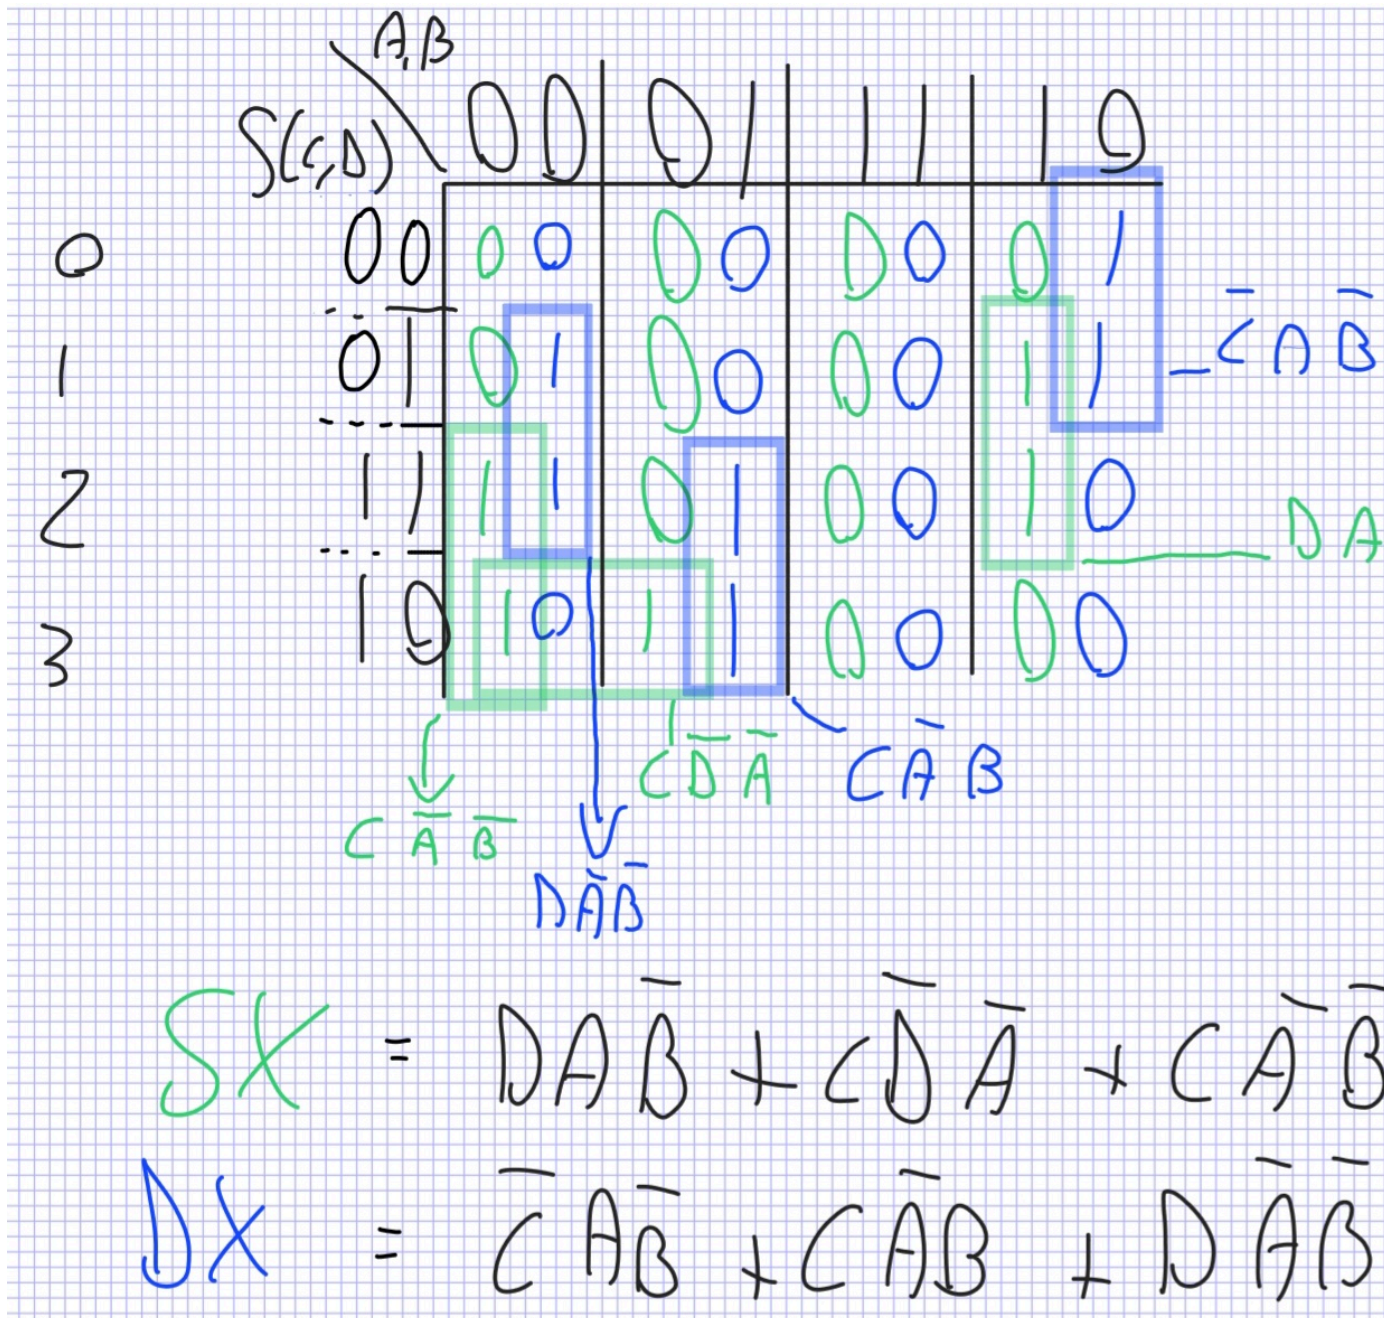 A,B
S(C,D) 00 01 11 10
0 00 00 00 00 01
1 01 01 00 00 11
C̅ A B̅
2 11 11 01 00 10
DA
3 10 10 11 00 00
C D̅ A̅
C A̅ B
C A̅ B̅
D A̅ B̅
SX = DAB̅ + CD̅A̅ + CA̅B̅
DX = C̅AB̅ + CA̅B + DA̅B̅